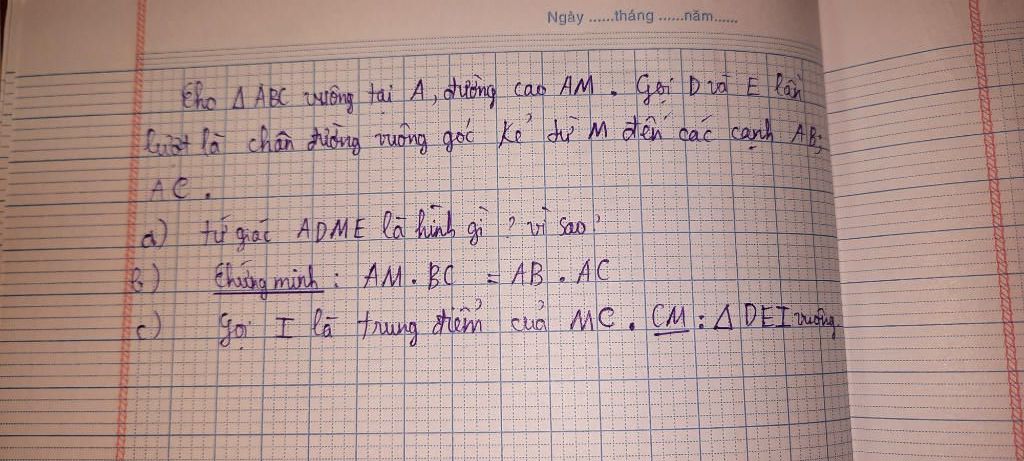 Ngày ......tháng ......năm......
Cho Δ ABC vuông tại A, đường cao AM. Gọi D và E lần
lượt là chân đường vuông góc kẻ từ M đến các cạnh AB;
AC.
a) tứ giác ADME là hình gì? vì sao?
b) Chứng minh: AM. BC = AB. AC
c) Gọi I là trung điểm của MC. CM: Δ DEI vuông